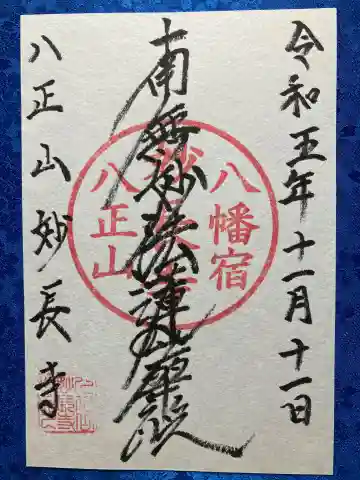 令和五年十一月十一日
南無妙法蓮華經
八幡宿
妙長寺
八正山
八正山妙長寺